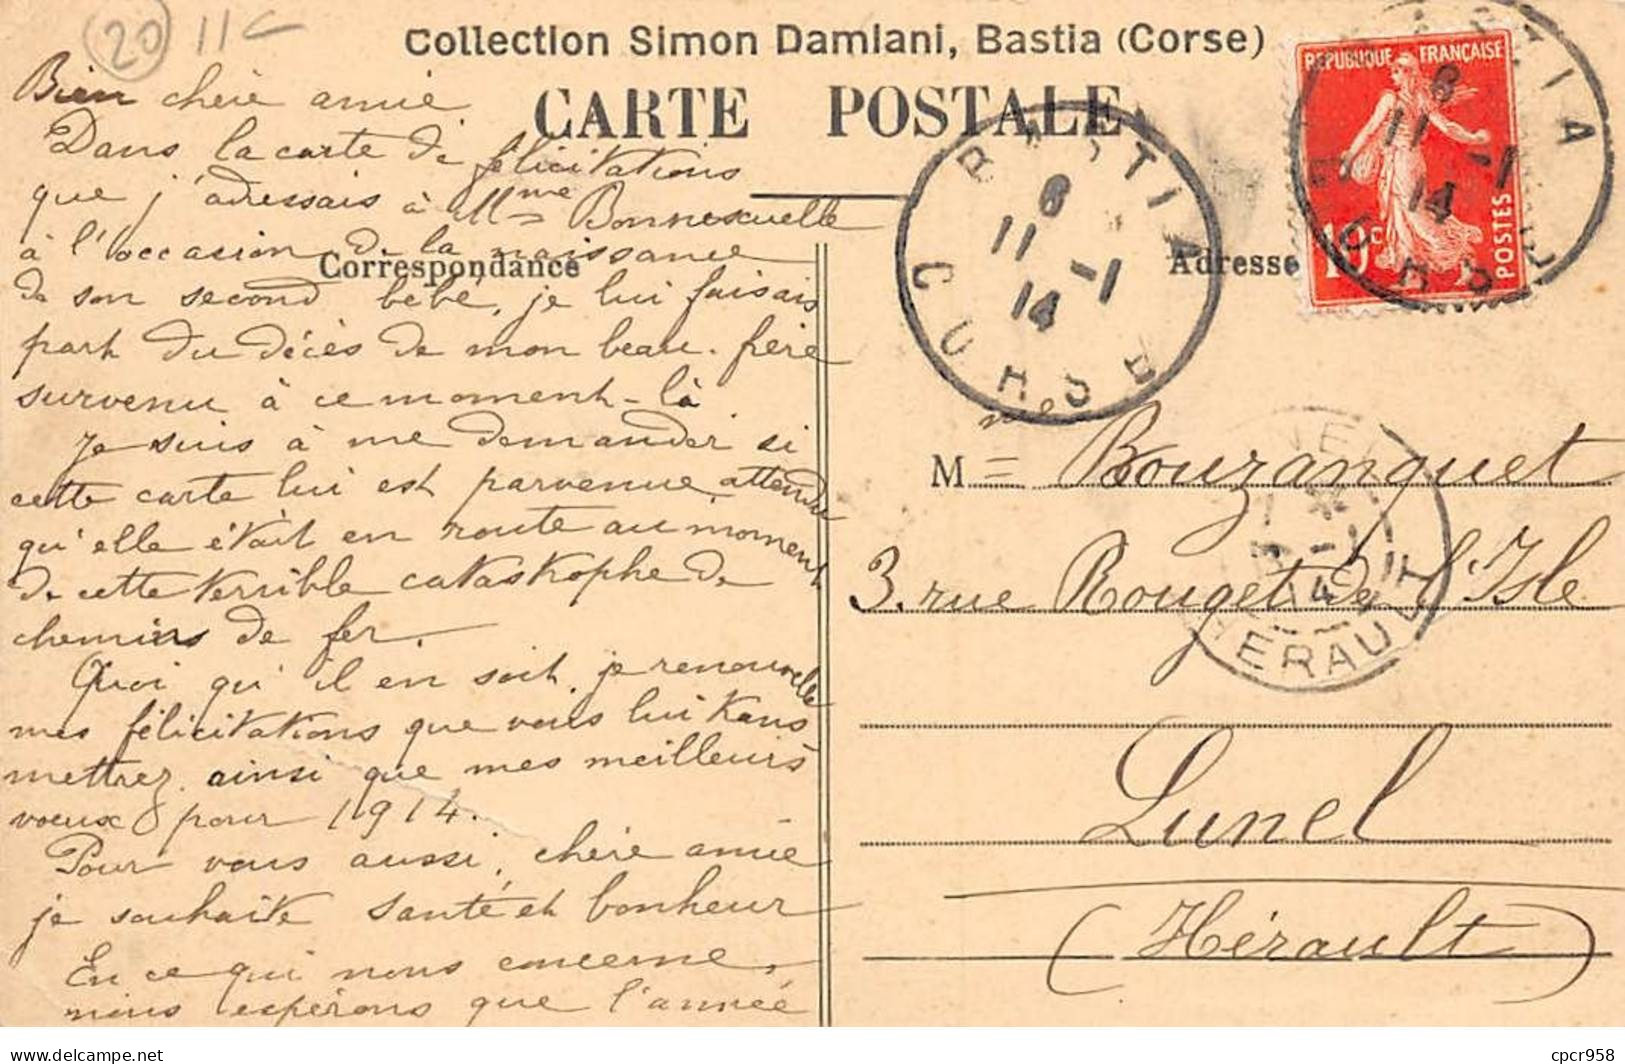 20 11c
Collection Simon Damiani, Bastia (Corse)
CARTE POSTALE
Correspondance
Adresse
Bien chère amie
Dans la carte de félicitations
que j'adressais à Mme
à l'occasion de la naissance
de son second bébé, je lui faisais
part du décès de mon beau-frère
survenu à ce moment-là.
Je suis à me demander si
cette carte lui est parvenue, attendu
qu'elle était en route au moment
de cette terrible catastrophe de
chemins de fer.
Quoi qu'il en soit, je renouvelle
mes félicitations que vous lui trans
mettrez, ainsi que mes meilleurs
voeux pour 1914.
Pour vous aussi, chère amie
je souhaite santé et bonheur
En ce qui nous concerne,
nous espérons que l'année
REPUBLIQUE FRANÇAISE
10c
POSTES
BASTIA
6
11 -1
14
CORSE
BASTIA
6
11 -1
14
CORSE
Mme Bouzanquet
3. rue Rouget de l'Isle
Lunel
(Hérault)
HERAULT
cpcr958